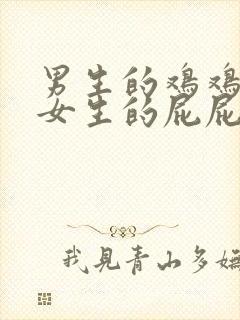 男生的鸡鸡
女生的屁屁
我見青山多嫵